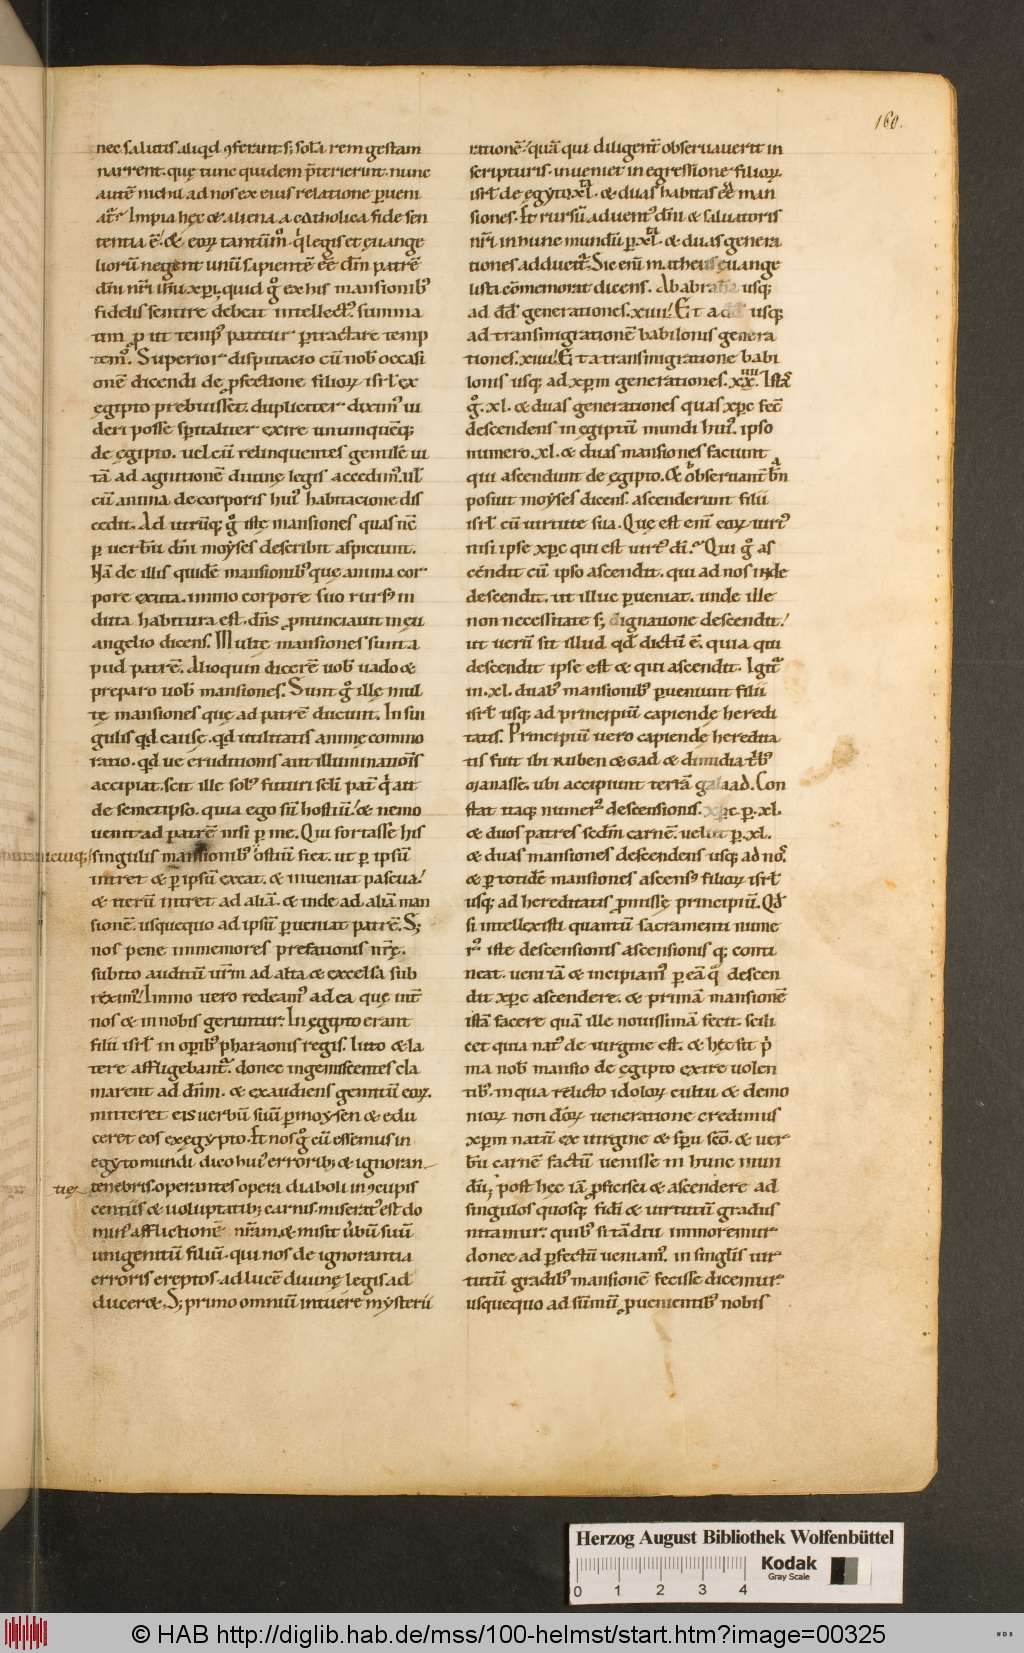 160.
nec salutis aliqd ꝯferant s; sola rem gestam
narrent. quę tunc quidem p̄t̄rierunt. nunc
autē nichil ad nos ex eius relatione ꝑueni
at̄. Impia hęc & aliena a catholica fide sen
tentia ē. & eoꝝ tantūmͦ. q̇ legis et ęuange
liorū negent unū sapientē eē dm̄ patrē
dn̄i nr̄i ih̄u xp̄i. quid gͦ ex his mansionibꝰ
fidelis sentire debeat intellectꝰ. summa
tim ꝓ ut tempꝰ patitur ꝑtractare temp
temꝰ. Superior disputacio cū nob̄ occasi
onē dicendi de ꝓfectione filioꝝ isrl̄ ex
ęgipto prebuisset. dupliciter diximꝰ ui
deri posse sp̄italiter exire unumquēq;
de ęgipto. uel cū relinquentes gentilē ui
tā ad agnitionē diuinę legis accedimꝰ. ul̄
cū anima de corporis huiꝰ habitacione dis
cedit. Ad utrūq; gͦ iste mansiones quas nc̄
ꝑ uerbū dn̄i moẏses describit aspiciunt.
Nā de illis quidē mansionibꝰ quę anima cor
pore exuta. immo corpore suo rursꝰ in
duta habitura est. dn̄s ꝓnunciauit in eu
angelio dicens. Multe mansiones sunt a
pud patrē. Alioquin dicerē uob̄ uado &
preparo uob̄ mansiones. Sunt gͦ illę mul
tę mansiones quę ad patrē ducunt. In sin
gulis qd̄ causę. qd̄ utilitatis animę commo
ratio. qd̄ ue eruditionis aut illuminationis
accipiat. scit ille solꝰ futuri scl̄i pat̄ q̇ ait
de semetipso. quia ego sū hostiū. & nemo
uenit ad patrē nisi ꝑ me. Qui fortasse his
singulis mansionibꝰ ostiū fiet. ut ꝑ ipsū
intret & ꝑ ipsū exeat. & inueniat pascua.
& iterū intret ad aliā. & inde ad aliā man
sionē. usquequo ad ipsū ꝑueniat patrē. S;
nos pene immemores prefationis nr̄ę.
subito auditū ur̄m ad alta & excelsa sub
reximꝰ. Immo uero redeamꝰ ad ea quę int̄
nos & in nobis geruntur. In ęgipto erant
filii isrl̄ in oꝑibꝰ pharaonis regis. luto & la
tere affligebant̄. donec ingemiscentes cla
marent ad dn̄m. & exaudiens gemitū eoꝝ.
mitteret eis uerbū suū ꝑ moysen & edu
ceret eos ex ęgypto. Et nos gͦ cū essemus in
egyto mundi dico huiꝰ errorib; & ignoran
tię
tenebris. operantes opera diaboli in ꝯcupis
centiis & uoluptatib; carnis. miseratꝰ est do
minꝰ afflictionē nr̄am. & misit ūbum suū
unigenitū filiū. qui nos de ignorantia
erroris ereptos. ad lucē diuinę legis ad
ducer&. S; primo omniū intuere mẏsterii
rationē. quā qui diligent̄ obseruauerit in
scripturis. inueniet in egressione filioꝝ.
isrl̄ de ęgẏto. xl. & duas habitas eē man
siones. Et rursū aduentꝰ dn̄i & saluatoris
nr̄i in hunc mundū ꝑ xl. & duas genera
tiones adducit̄. Sic eni matheus ęuange
lista cōmemorat dicens. Ab abraham usq;
ad dd̄ generationes. xiiii. Et a dd̄ usq;
ad transmigrationē babilonis genera
tiones. xiiii. Et a transmigratione babi
lonis usq; ad xp̄m generationes. xx. Istas
gͦ. xl. & duas generationes quas xp̄c fec̄
descendens in ęgiptū mundi huiꝰ. ipso
numero. xl. & duas mansiones faciunt
qui ascendunt de ęgipto. & obseruant̄ bn̄
posuit moẏses dicens. ascenderunt filii
isrl̄ cū uirtute sua. Quę est eni eoꝝ uirtꝰ
nisi ipse xp̄c qui est uirtꝰ di. Qui gͦ as
cendit cū ipso ascendit. qui ad nos inde
descendit. ut illuc ꝑueniat. unde ille
non necessitate s; dignatione descendit.
ut uerū sit illud qd̄ dictū ē. quia qui
descendit ipse est & qui ascendit. Igit̄
in. xl. duabꝰ mansionibꝰ ꝑueniunt filii
isrl̄ usq; ad principiū capiendę heredi
tatis. Principiū uero capiende heredita
tis fuit ibi ruben & Gad & dimidia tribꝰ
Manasse. ubi accipiunt terrā galaad. Con
stat itaq; numerꝰ descensionis. xp̄c. ꝑ. xl.
& duos patres secdm̄ carnē. uelut ꝑ. xl.
& duas mansiones descendens usq; ad nos.
& ꝑ totidē mansiones ascensꝰ filioꝝ isrl̄
usq; ad hereditatis ꝓmissę principiū. Qd̄
si intellexisti quantū sacramenti nume
rꝰ iste descensionis ascensionis q; conti
neat. ueni iā & incipiamꝰ ꝑ ea q̄ descen
dit xp̄c ascendere. & primā mansionē
istā facere quā ille nouissimā fecit. scili
cet quia natꝰ de uirgine est. & hęc sit p̄
ma nob̄ mansio de ęgipto exire uolen
tibꝰ. in qua relicto idoloꝝ cultu & demo
nioꝝ non dōꝝ ueneratione credimus
xp̄m natū ex uirgine & sp̄u sc̄o. & uer
bū carnē factū uenisse in hunc mun
dū; post hęc iā ꝓficisci & ascendere ad
singulos quosq; fidei & uirtutū gradus
nitamur. quibꝰ si tādiu immoremur
donec ad ꝑfectū ueniamꝰ. in singl̄is uir
tutū gradibꝰ mansionē fecisse dicemur.
usquequo ad sūmū ꝓuenientibꝰ nobis
Herzog August Bibliothek Wolfenbüttel
Kodak
Gray Scale
0 1 2 3 4
© HAB http://diglib.hab.de/mss/100-helmst/start.htm?image=00325